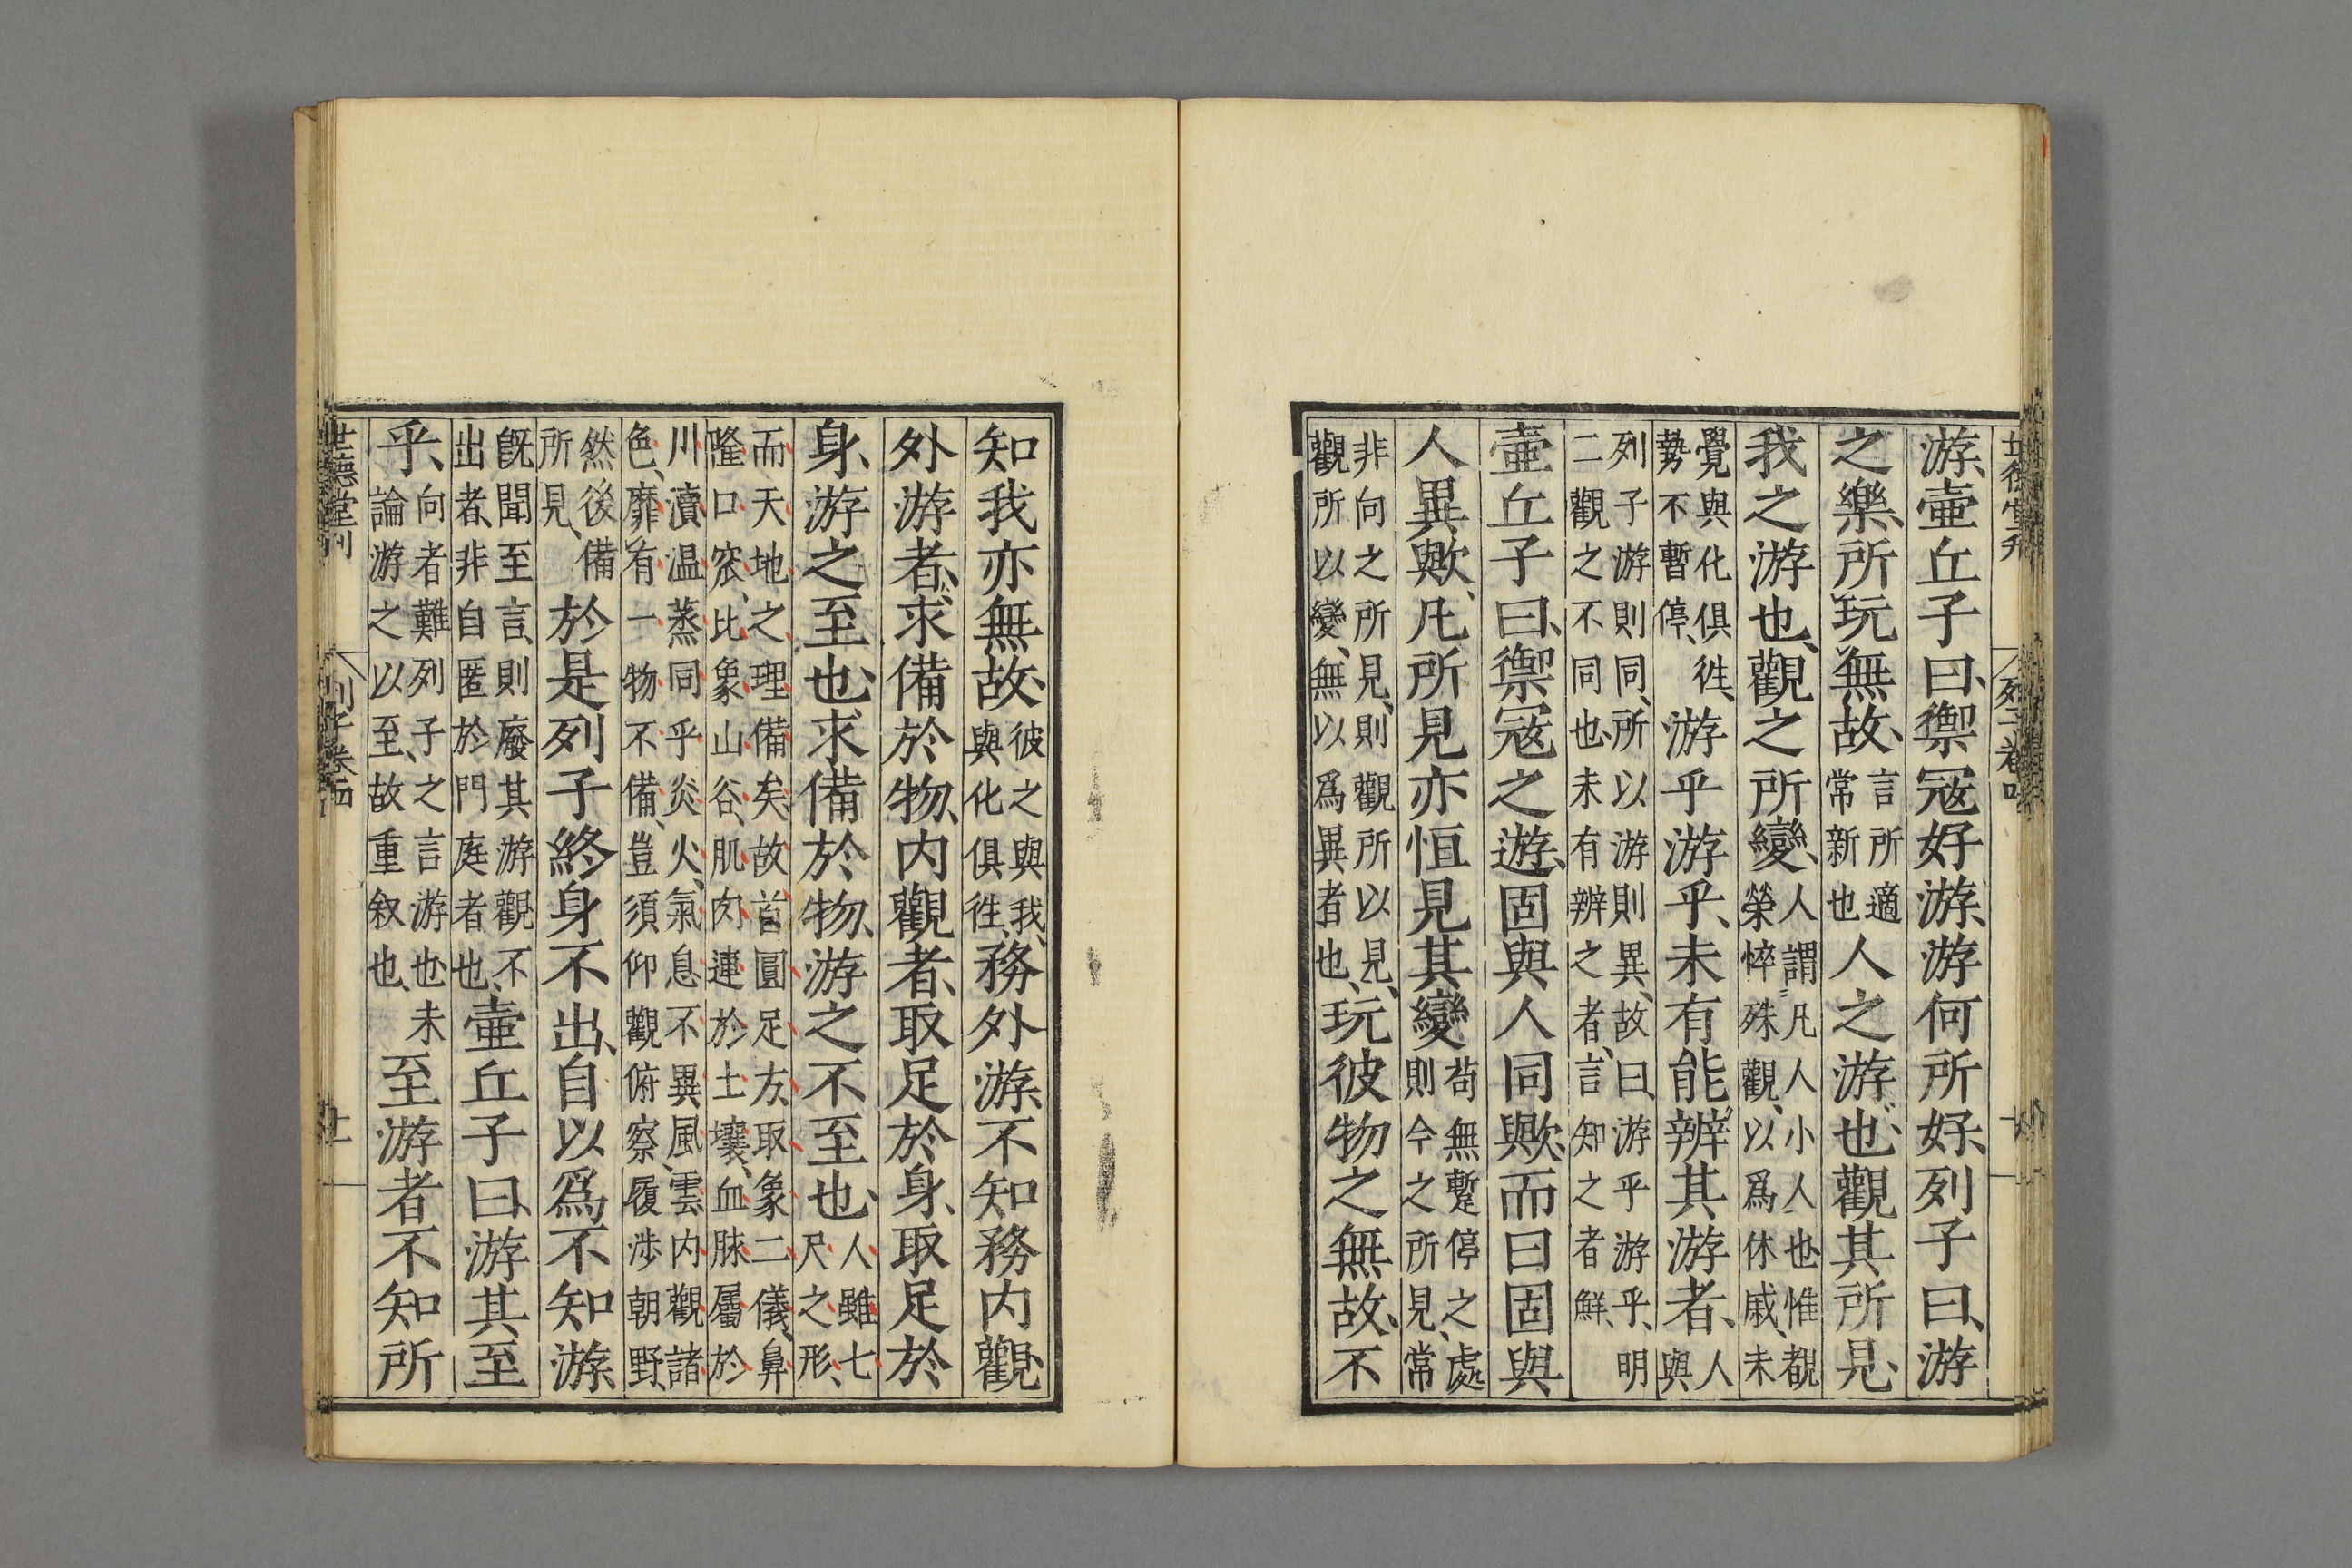 游、壷丘子曰、禦寇好游、游何所好、列子曰、游
之樂、所玩無故、言所適常新也人之游也、觀其所見、
我之游也、觀之所變、人謂凡人小人也惟覩榮悴殊觀、以爲休戚、未
覺與化俱徃、勢不暫停、游乎游乎、未有能辨其游者、人與
列子游則同、所以游則異、故曰游乎游乎、明二觀之不同也未有辨之者、言知之者鮮、
壷丘子曰、禦寇之遊、固與人同歟、而曰固與
人異歟、凡所見亦恒見其變苟無蹔停之處則今之所見、常
非向之所見、則觀所以見、觀所以變、無以爲異者也、玩彼物之無故、不
知我亦無故、彼之與我、與化俱徃、務外游、不知務内觀、
外游者、求備於物、内觀者、取足於身、取足於
身、游之至也、求備於物、游之不至也、人雖七尺之形、
而天地之理備矣、故首圓足方、取象二儀、鼻隆口窊、比象山谷、肌肉連於土壤、血脉屬於
川瀆、温蒸同乎炎火、氣息不異風雲、内觀諸色、靡有一物不備、豈須仰觀俯察、履涉朝野、
然後備所見、於是列子終身不出、自以爲不知游、
旣聞至言、則廢其游觀、不出者、非自匿於門庭者也、壷丘子曰、游其至
乎、向者難列子之言游也、未論游之以至、故重叙也、至游者不知所
世德堂刊
列子卷四
十一